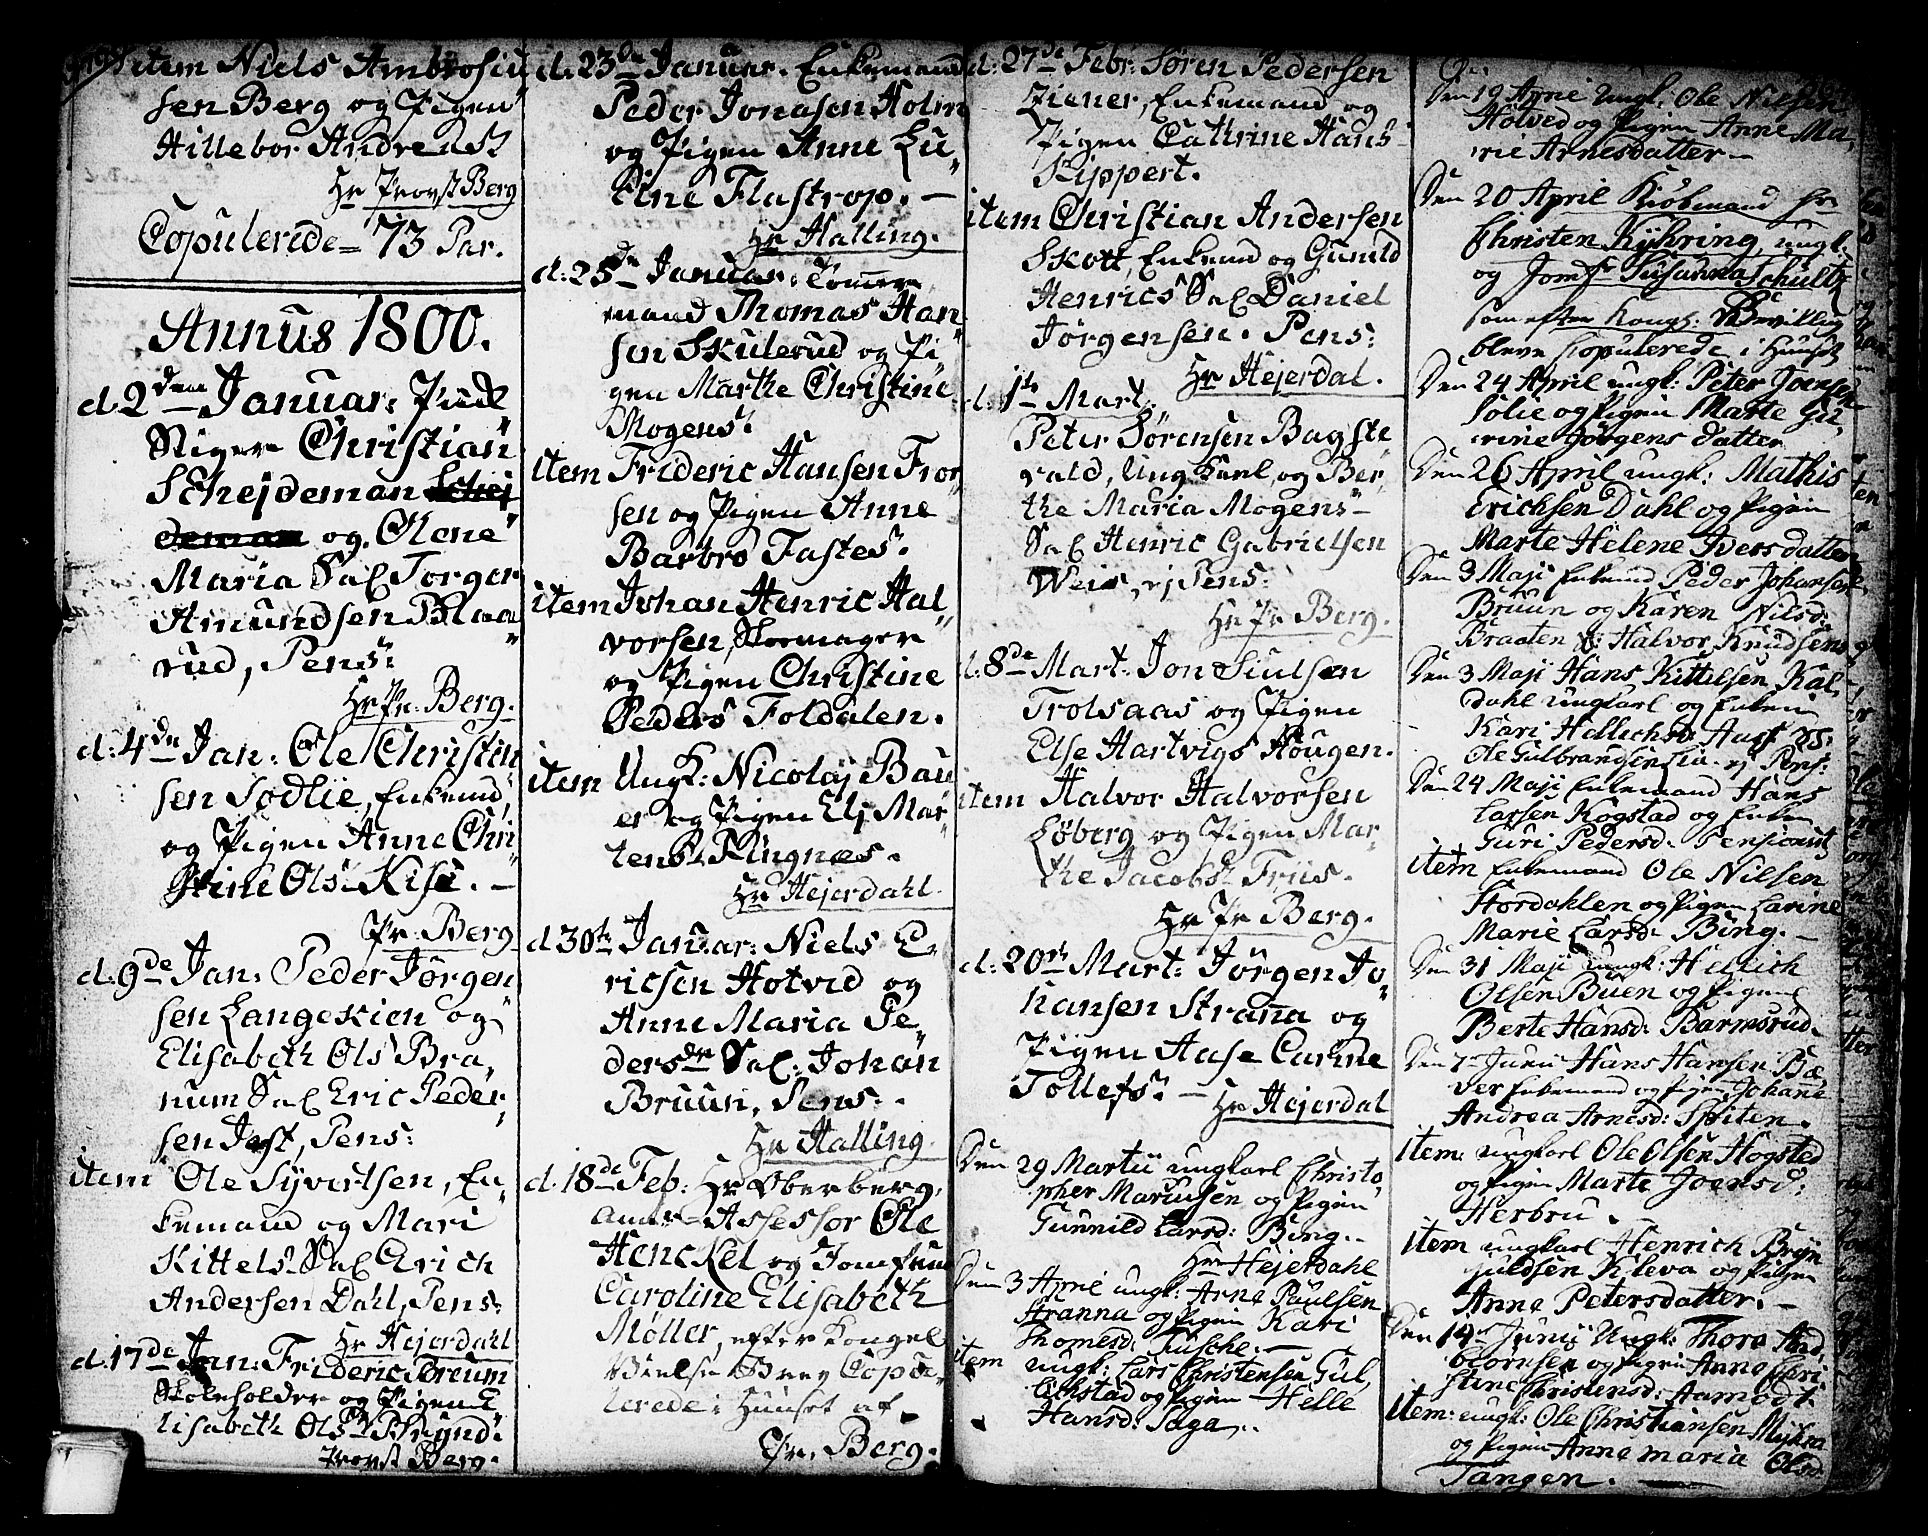 item Niels Ambrosiu
sen Berg og Pigen
Hillebor Andreædt
Hr Provst Berg
Copulerede = 73 Par.
Annus 1800.
d. 2den Januar:
Stiger Christian
Schejdeman Schej
deman og Olene
Maria Sal Torger
Amundsen Blaa
rud, Pens:
Hr Pr: Berg.
d: 4de Jan: Ole Christin
sen Sødlie, Enkemd,
og Pigen Anne Chri
stine Ols: Kise. -
Pr: Berg
d: 9de Jan: Peder Jørgen
sen Langekien og
Elisabeth Ols Bra
num Sal Eric Peder
sen Jest, Pens:
item Ole Syvertsen, En
kemand og Mari
Kittels Sal Erich
Andersen Dahl, Pens:
Hr Hejerdahl
d: 17de Jan: Frideric Breum
Skoleholder og Pigen E
lisabeth Ols Strynd:
Provst Berg.
d: 23de Januar. Enkemand
Peder Jonasen Holm
og Pigen Anne Lu
cine Flastrop. -
Hr Halling.
d: 25de Januar: Tømmer
mand Thomas Han
sen Skulerud og Pi
gen Marthe Christine
Mogens:
item Frideric Hansen Fror
sen og Pigen Anne
Barbro Fastes:
item Johan Henric Hal
vorsen, Skomager
og Pigen Christine
Peders Foldalen.
item Ungk: Nicolaj Bau
er og Pigen Elj Mar
tens Ringnæs.
Hr Hejerdahl.
d. 30te Januar: Niels E
ricsen Hotvid og
Anne Maria Pe
dersdr Sal: Johan
Bruun, Pens:
Hr Halling.
d. 18de Feb: Hr Oberberg
amts-Assessor Ole
Henckel og Jomfrue
Caroline Elisabeth
Møller, efter Kongel
Brev Copu
lerede i Huuset af
Pr. Berg.
d: 27de Febr: Søren Pedersen
Ziener, Enkemand og
Pigen Cathrine Hans
Kippert.
item Christian Andersen
Skott, Enkemd og Gunild
Henrics Sal Daniel
Jørgensen. Pens:
Hr Hejerdal.
d: 1te Mart:
Peter Sørensen Bagste
vald, Ung Karl og Ber
the Maria Mogens
Sal Henric Gabrielsen
Weis, ej Pens:
Hr Pr Berg.
d: 8de Mart: Jon Siulsen
Trolsaas og Pigen
Else Hartvigs Hougen.
item Halvor Halvorsen
Søberg og Pigen Mar
the Jacobs: Friis.
Hr Pr Berg.
d: 20de Mart: Jørgen Jo
hansen Strana og
Pigen Aase Carine
Tollefs: -
Hr Hejerdal
Den 29 Martii ungkarl Christo
pher Mariusen og Pigen
Gunnild Larsd: Bing.
Hr Hejerdahl
Den 3 April ungk: Arne Paulsen
Stranna og Pigen Kari
Thomesd: Tusche. -
item ungk: Lars Christensen Gul
lichstad og Pigen Helle
Hansd: Saga.
Den 19 Aprie Ungk: Ole Nilsen
Hotved og Pigen Anne Ma
rie Arnesdatter -
Den 20 April Kiøbmand Hr
Christen Kyhring, ungk:
og Jomfr Susanna Schultz
som efter Kongl: Bevilling
bleve Copulerede i Huuset
Den 24 April ungk: Peter Joensen
Solie og Pigen Marte Gu
rine Jørgens datter
Den 26 April ungk: Mathis
Erichsen Dahl og Pigen
Marte Helene Iversdatter
Den 3 Maji Enkemd Peder Johansen
Bruun og Karen Nilsd:
Braaten S: Halvor Knudsens
Den 3 Maji Hans Kittelsen Kal
dahl ungkarl og Enken
Kari Hellichsd:
Ole Gulbrandsen Lia. ej Pens:
Den 24 Maji Enkemand Hans
Larsen Kogstad og Enken
Guri Pedersd: Pensionist
item Enkemand Ole Nilsen
Stordahlen og Pigen Larine
Marie Larsd: Bing. -
Den 31 Maji ungk: Hellich
Olsen Buen og Pigen
Berte Hansd: Barmsrud.
Den 7 Junii Hans Hansen Bæ
ver Enkemand og Pigen Johane
Andrea Arnesd: Spiten.
item: ungkarl Ole Olsen Hogsted
og Pigen Marte Joensd:
Herbru.
item ungkarl Henrich Bryn
juldsen Kleva og Pigen
Anne Petersdatter. -
Den 14de Junii Ungk: Thore And
biornsen og Pigen Anne Chri
stine Christensd: Aamodt.
item: ungk: Ole Christiansen Myhra
og Pigen Anne Maria Olsd:
Tangen.